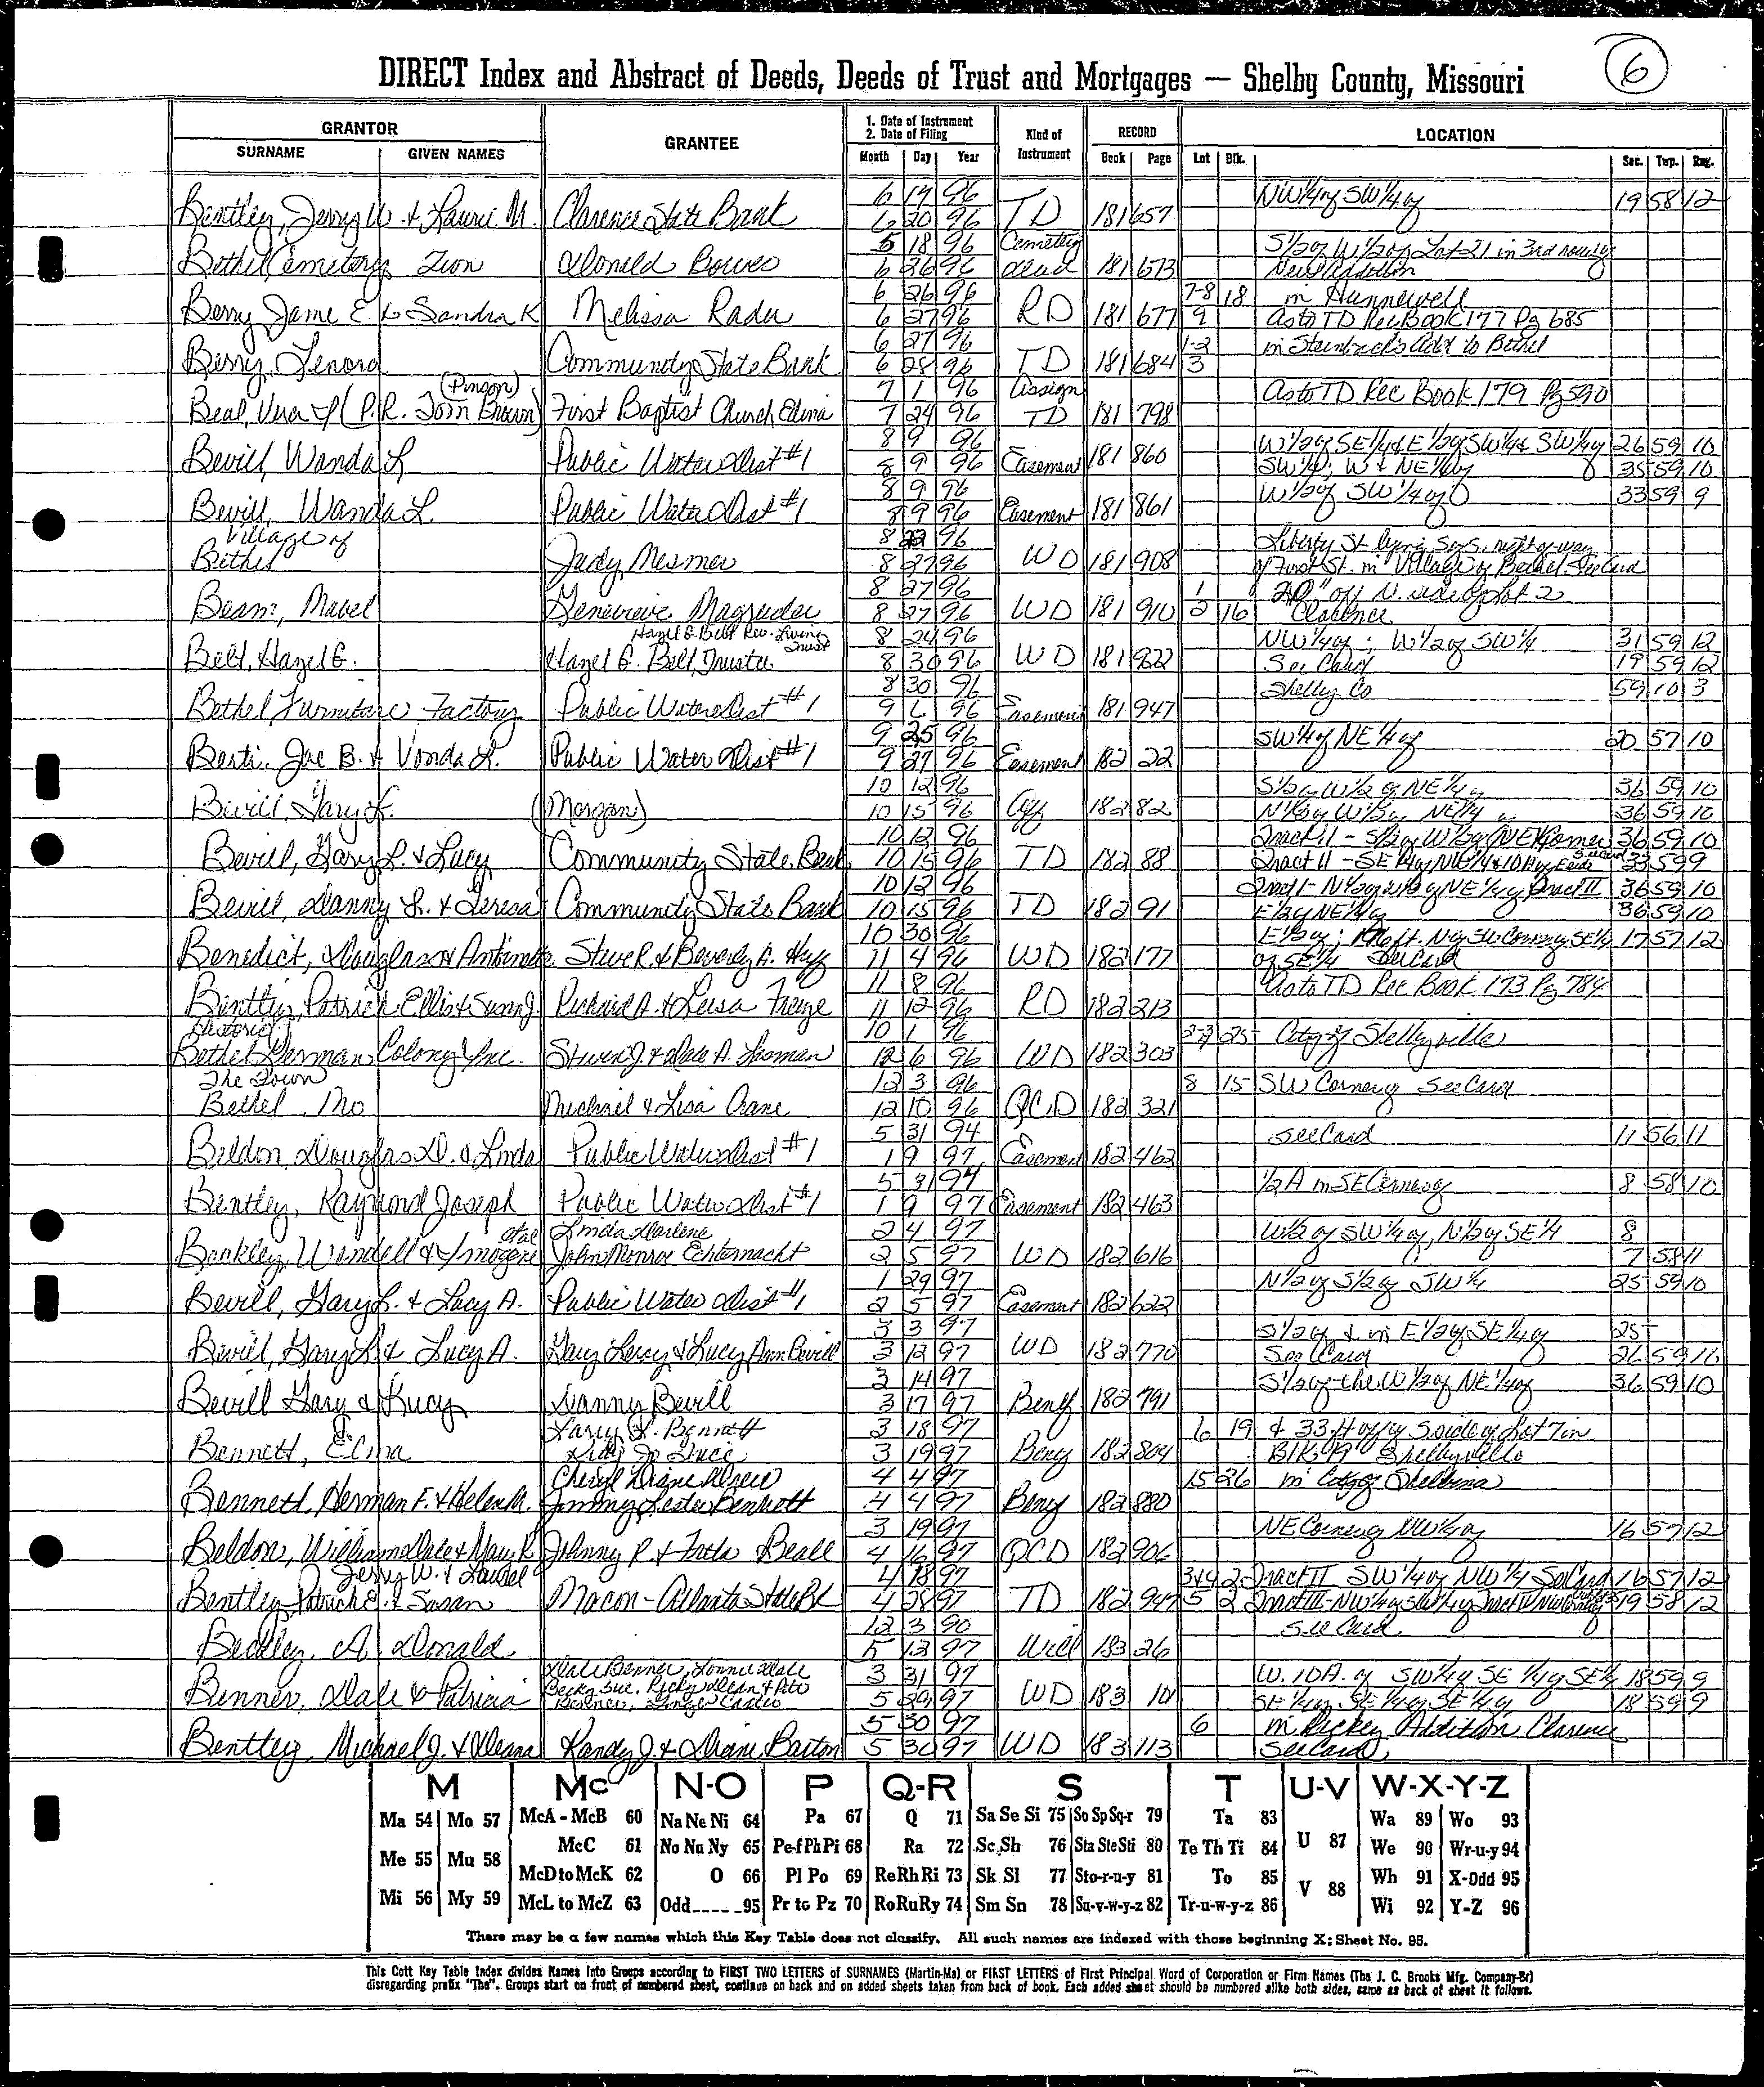 6
DIRECT Index and Abstract of Deeds, Deeds of Trust and Mortgages — Shelby County, Missouri
GRANTOR GRANTEE 1. Date of Instrument 2. Date of Filing Kind of Instrument RECORD LOCATION
SURNAME GIVEN NAMES Month Day Year Book Page Lot Blk. Sec. Twp. Rng.
6 19 96 NW 1/4 of SW 1/4 of 19 58 12
Bentley, Jerry W. & Laurie M. Clarence State Bank 6 20 96 TD 181 657
5 18 96 Cemetery S 1/2 of W 1/2 of Lot 21 in 3rd row of
Bethel Cemetery Zion Donald Bowes 6 26 96 deed 181 673 New Addition
6 26 96 7-8 18 in Hunnewell
Berry, Jame E. & Sandra K Melissa Rader 6 27 96 RD 181 677 9 As to TD Rec Book 177 Pg 685
6 27 96 1-2 in Steinbach's Add to Bethel
Berry, Lenora Community State Bank 6 28 96 TD 181 684 3
(Pinson) 7 1 96 Assign As to TD Rec Book 179 Pg 590
Beal, Vera L (P.R. Torn Brown) First Baptist Church, Edina 7 24 96 TD 181 798
8 9 96 W 1/2 of SE 1/4 & E 1/2 of SW 1/4 & SW 1/4 of 26 59 10
Bevill, Wanda L Public Water Dist #1 8 9 96 Easement 181 860 SW 1/4; W & NE 1/4 of 35 59 10
8 9 96 W 1/2 of SW 1/4 of 33 59 9
Bevill, Wanda L. Public Water Dist #1 8 9 96 Easement 181 861
Village of 8 22 96 Liberty St lying S of S. right of way
Bethel Judy Mesmer 8 27 96 WD 181 908 of First St. in Village of Bethel See Card
8 27 96 1 20" off N. side of Lot 2
Beam, Mabel Genevieve Magruder 8 27 96 WD 181 910 2 16 Clarence
Hazel G. Belt Rev. Living Trust 8 24 96 NW 1/4 of; W 1/2 of SW 1/4 31 59 12
Belt, Hazel G. Hazel G. Belt, Trustee 8 30 96 WD 181 922 See Card 19 59 12
8 30 96 Shelby Co 59 10 3
Bethel Furniture Factory Public Water Dist #1 9 6 96 Easement 181 947
9 25 96 SW 1/4 of NE 1/4 of 20 57 10
Berti, Joe B. & Vonda L. Public Water Dist #1 9 27 96 Easement 182 22
10 12 96 S 1/2 of W 1/2 of NE 1/4 of 36 59 10
Bevill, Gary L. (Morgan) 10 15 96 Aff 182 82 N 1/2 of W 1/2 of NE 1/4 of 36 59 10
10 12 96 Tract II - S 1/2 of W 1/2 of NE Corner 36 59 10
Bevill, Gary L. & Lucy Community State Bank 10 15 96 TD 182 88 Tract II - SE 1/4 of NW 1/4 & 10 A of See Card 33 59 9
10 12 96 Tract I - N 1/2 of W 1/2 of NE 1/4 of Tract II 36 59 10
Bevill, Danny L. & Teresa Community State Bank 10 15 96 TD 182 91 E 1/2 of NE 1/4 of 36 59 10
10 30 96 E 1/2 of; N of SW Corner of SE 1/4 17 57 12
Benedict, Douglas & Antoinette Steve R. & Beverly A. Huff 11 4 96 WD 182 177 of SE 1/4 See Card
11 8 96 As to TD Rec Book 173 Pg 784
Bentley, Patrick Ellis & Susan J. Richard A. & Leisa Freize 11 12 96 RD 182 213
Historic 10 1 96 2-3 25 City of Shelbyville
Bethel German Colony Inc. Steven J. & Dale A. Lisman 12 6 96 WD 182 303
The Town 12 3 96 8 15 SW Corner of See Card
Bethel Mo Michael & Lisa Crane 12 10 96 QCD 182 321
5 31 94 See Card 11 56 11
Beldon, Douglas D. & Linda Public Water Dist #1 1 9 97 Easement 182 462
5 31 94 1/2 A in SE Corner of 8 58 10
Bentley, Raymond Joseph Public Water Dist #1 1 9 97 Easement 182 463
etal Linda Darlene 2 4 97 W 1/2 of SW 1/4 of, N 1/2 of SE 1/4 8
Beckley, Wendell & Imogene John Monroe Echternacht 2 5 97 WD 182 616 7 58 11
1 29 97 N 1/2 of S 1/2 of SW 1/4 25 59 10
Bevill, Gary L. & Lucy A. Public Water Dist #1 2 5 97 Easement 182 622
3 3 97 S 1/2 of & in E 1/2 of SE 1/4 of 25
Bevill, Gary L. & Lucy A. Gary Leroy & Lucy Ann Bevill 3 12 97 WD 182 770 See Card 26 59 10
3 14 97 S 1/2 of the W 1/2 of NE 1/4 of 36 59 10
Bevill Gary & Lucy Danny Bevill 3 17 97 Beny 182 791
Larry L. Bennett 3 18 97 6 19 & 33 ft off of S side of Lot 7 in
Bennett, Elma 3 19 97 Beny 182 804 Blk 19 Shelbyville
Cheryl Diane Drew 4 4 97 15 26 in City of Shelbina
Bennett, Herman F. & Helen M. Jimmy Lester Bennett 4 4 97 Beny 182 880
3 19 97 NE Corner of NW 1/4 of 16 57 12
Beldon, William Dale & Mary R. Johnny P. & Beall 4 16 97 QCD 182 906
Jerry W. & Laurel 4 18 97 3&4 2 Tract II SW 1/4 of NW 1/4 See Card 16 57 12
Bentley, Patrick E. & Susan Macon-Atlanta State Bk 4 28 97 TD 182 947 5 2 Tract III - NW 1/4 of SW 1/4 of 19 58 12
12 3 90 See Card
Beckley, A. Donald 5 12 97 Will 183 26
Dale Benner, Lonnie Dale 3 31 97 W. 10A. of SW 1/4 of SE 1/4 of SE 1/4 18 59 9
Benner, Dale & Patricia Becky Sue, Ricky Dean & Benner, Ginger 5 29 97 WD 183 101 SE 1/4 of SE 1/4 of SE 1/4 of 18 59 9
5 30 97 6 in Richey Addition Clarence
Bentley, Michael J. & Deana Randy J. & Diane Barton 5 30 97 WD 183 113 See Card
M Mc N-O P Q-R S T U-V W-X-Y-Z
Ma 54 Mo 57 McA - McB 60 Na Ne Ni 64 Pa 67 Q 71 Sa Se Si 75 So Sp Sq-r 79 Ta 83 Wa 89 Wo 93
McC 61 No Nu Ny 65 Pe-f Ph Pi 68 Ra 72 Sc, Sh 76 Sta Ste Sti 80 Te Th Ti 84 U 87 We 90 Wr-u-y 94
Me 55 Mu 58 McD to McK 62 O 66 Pl Po 69 Re Rh Ri 73 Sk Sl 77 Sto-r-u-y 81 To 85 V 88 Wh 91 X-Odd 95
Mi 56 My 59 McL to McZ 63 Odd_____95 Pr to Pz 70 Ro Ru Ry 74 Sm Sn 78 Su-v-w-y-z 82 Tr-u-w-y-z 86 Wi 92 Y-Z 96
There may be a few names which this Key Table does not classify. All such names are indexed with those beginning X; Sheet No. 95.
This Cott Key Table Index divides Names into Groups according to FIRST TWO LETTERS of SURNAMES (Martin-Ma) or FIRST LETTERS of First Principal Word of Corporation or Firm Names (The J. C. Brooks Mfg. Company-Br)
disregarding prefix "The". Groups start on front of numbered sheet, continue on back and on added sheets taken from back of book. Each added sheet should be numbered alike both sides, same as back of sheet it follows.